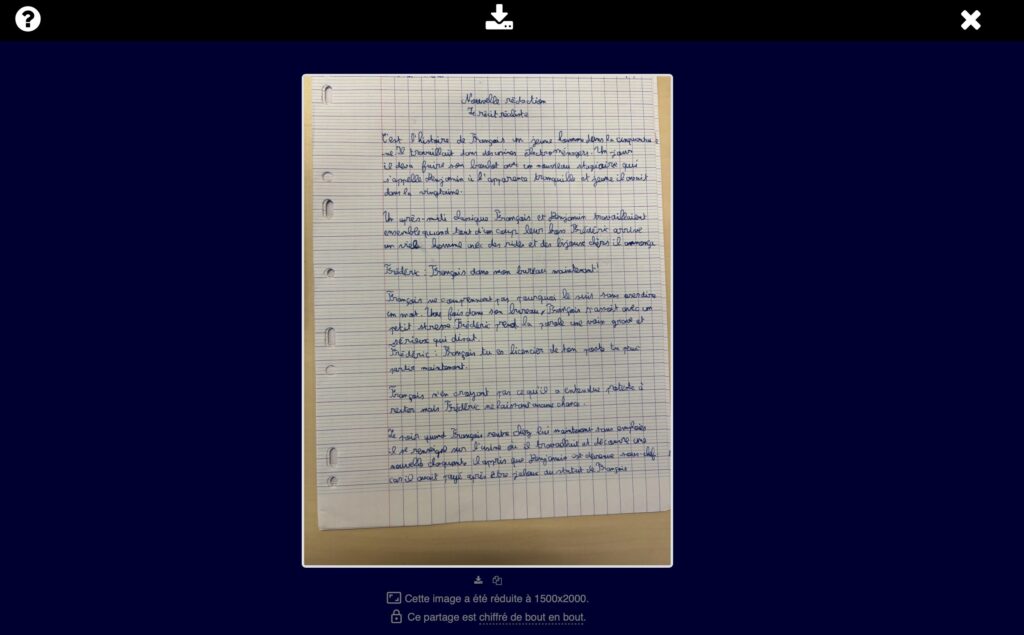 Nouvelle rédaction
Le récit réaliste
C'est l'histoire de François un jeune homme dans la cinquantai
-ne Il travaillait dans des usines électroménagers. Un jour
il devra faire son boulot avec un nouveau stagiaire qui
s'appelle Benjamin à l'apparence tranquille et jeune il avait
dans la vingtaine.
Un après-midi classique François et Benjamin travaillaient
ensemble quand tout d'un coup leur boss Frédéric arrive
un vieil homme avec des rides et des bijoux chers il annonça
Frédéric : François dans mon bureau maintenant !
François ne comprennant pas pourquoi le suis sans
un mot. Une fois dans son bureau, François s'assoit avec un
petit stresse Frédéric prend la parole une voix grave et
sérieux qui disait.
Frédéric : François tu es licencier de ton poste tu peux
partir maintenant.
François n'en croyant pas ce qu'il a entendue à
rester mais Frédéric ne laissant aucune chance.
Le soir quand François rentre chez lui maintenant sans emploies
il se renseigne sur l'usine où il travaillait et découvre une
nouvelle choquante il appris que Benjamin est devenue sous-chef
car il avait payé après être jaloux au statut de François
Cette image a été réduite à 1500x2000.
Ce partage est chiffré de bout en bout.